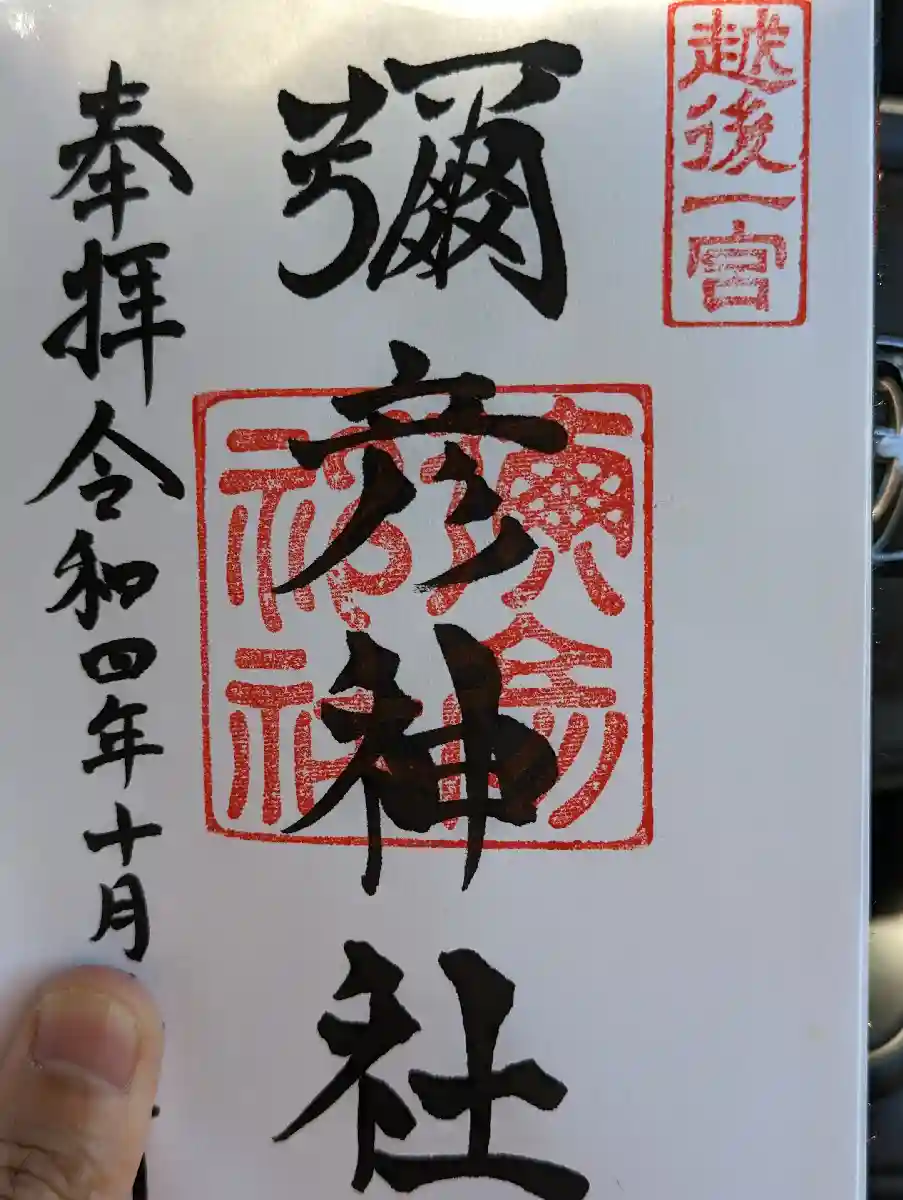 越後一宮
彌彦神社
奉拝令和四年十月